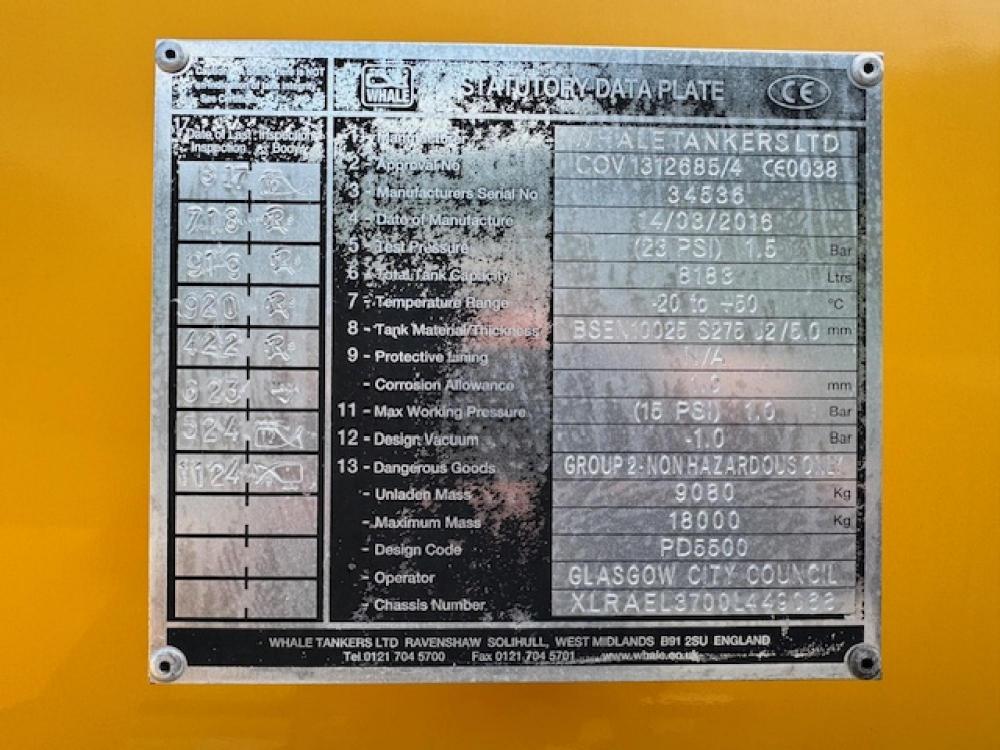 WHALE
STATUTORY DATA PLATE
CE
Date of Last Inspection
Inspection Body
3 17
7 18
9 19
9 20
4 22
6 23
5 24
11 24
1 - Manufacturer WHALE TANKERS LTD
2 - Approval No COV 1312685/4 CE0038
3 - Manufacturers Serial No 34536
4 - Date of Manufacture 14/03/2016
5 - Test Pressure (23 PSI) 1.5 Bar
6 - Total Tank Capacity 8183 Ltrs
7 - Temperature Range -20 to +50 °C
8 - Tank Material/Thickness BSEN10025 S275 J2/5.0 mm
9 - Protective Lining N/A
- Corrosion Allowance 1.0 mm
11 - Max Working Pressure (15 PSI) 1.0 Bar
12 - Design Vacuum -1.0 Bar
13 - Dangerous Goods GROUP 2-NON HAZARDOUS ONLY
- Unladen Mass 9080 Kg
- Maximum Mass 18000 Kg
- Design Code PD5500
- Operator GLASGOW CITY COUNCIL
- Chassis Number
WHALE TANKERS LTD RAVENSHAW SOLIHULL, WEST MIDLANDS B91 2SU ENGLAND
Tel 0121 704 5700 Fax 0121 704 5701 www.whale.co.uk